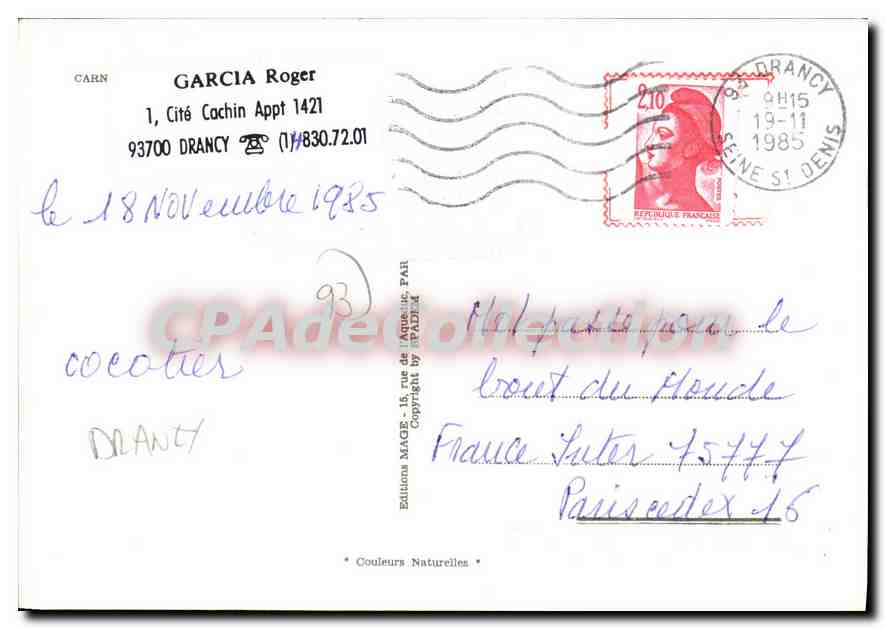 CARN
GARCIA Roger
1, Cité Cachin Appt 1421
93700 DRANCY ☎ (1)4830.72.01
le 18 NOVembre 1985
2,10
REPUBLIQUE FRANÇAISE
POSTES
93 DRANCY
9H15
19-11
1985
SEINE St DENIS
93
cocotier
DRANCY
Editions MAGE - 15, rue de l'Aqueduc, PAR
Copyright by SPADEM
CPAdeCollection
passe pour le
bout du Monde
France Inter 75777
Paris cedex 16
* Couleurs Naturelles *